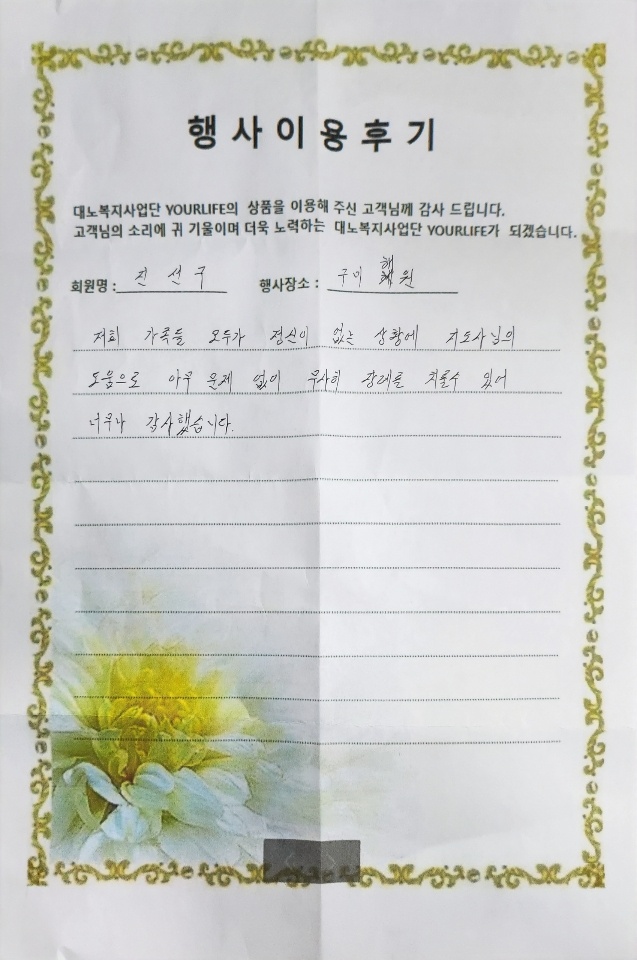 행사이용후기
대노복지사업단 YOURLIFE의 상품을 이용해 주신 고객님께 감사 드립니다.
고객님의 소리에 귀 기울이며 더욱 노력하는 대노복지사업단 YOURLIFE가 되겠습니다.
회원명 : 진선구 행사장소 : 구미
저희 가족들 모두가 정신이 없는 상황에 지도사님의
도움으로 아무 문제 없이 무사히 장례를 치룰수 있어
너무나 감사했습니다.